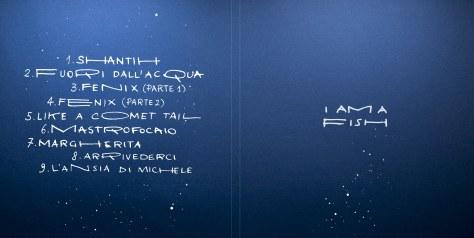 1. SHANTIH
2. FUORI DALL'ACQUA
3. FENIX (PARTE 1)
4. FENIX (PARTE 2)
5. LIKE A COMET TAIL
6. MASTROFOCAIO
7. MARGHERITA
8. ARRIVEDERCI
9. L'ANSIA DI MICHELE
I AM A
FISH